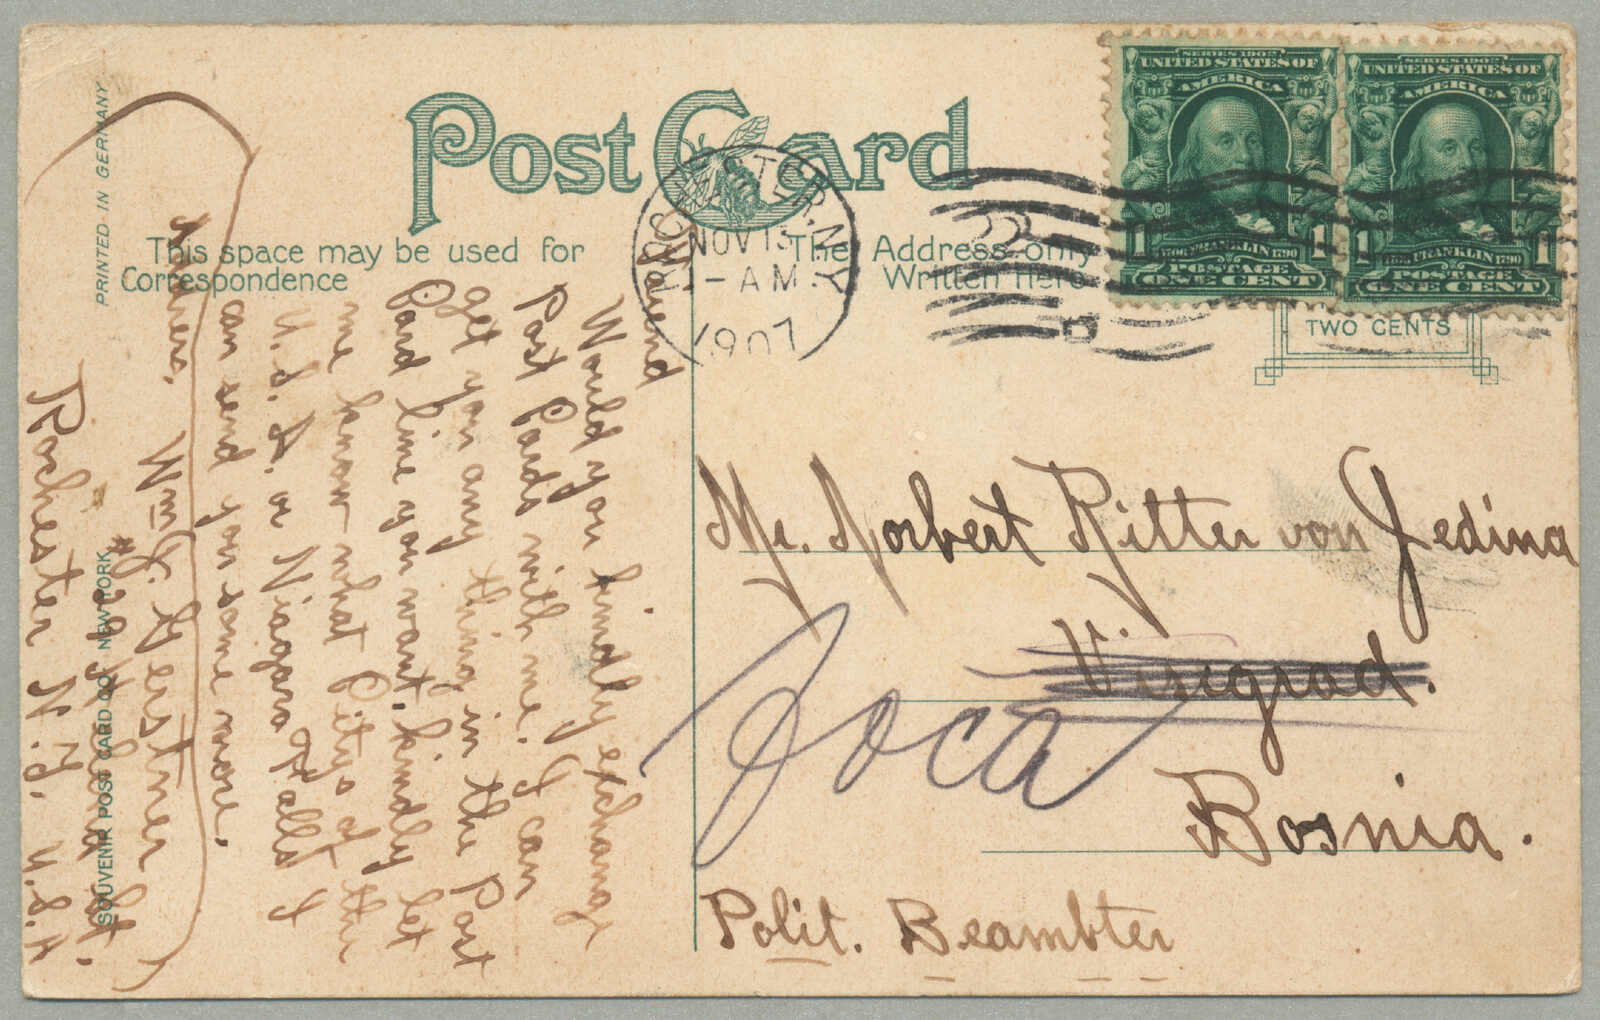 Post Card
This space may be used for
Correspondence
The Address only
Written Here
PRINTED IN GERMANY
SOUVENIR POST CARD CO. NEW YORK
ROCHESTER, N.Y.
NOV 13
-AM
1907
SERIES 1902
UNITED STATES OF
AMERICA
1706 FRANKLIN 1790
1 POSTAGE 1
ONE CENT
SERIES 1902
UNITED STATES OF
AMERICA
1706 FRANKLIN 1790
1 POSTAGE 1
ONE CENT
TWO CENTS
My Friend
Would you kindly exchange
Post Cards with me. I can
get you any thing in the Post
Card line you want, kindly let
me know what Citys of the
U.S.A. or Niagara Falls I
can send you some more.
Address,
Wm J. Gerstner
St.
Rochester N.Y. U.S.A
Mr. Norbert Ritter von Jedina
Visegrad.
Foca
Bosnia.
Polit. Beambter